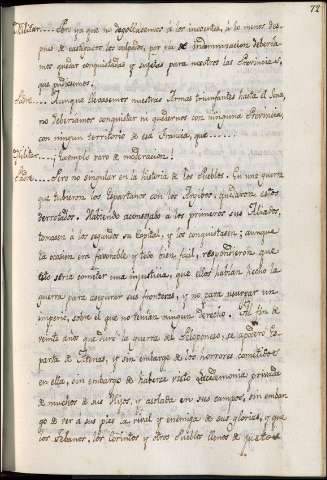 72
Militar.... Pero ya que no degollasemos á los inocentes, á lo menos des-
pues de castigados los culpados, por via de indemnizacion deberia-
mos quedar conquistadas y sujetas para nosotros las Provincias,
que pudiesemos.
Padre.... Aunque llevasemos nuestras Armas triunfantes hasta el Sena,
no deberiamos conquistar ni quedarnos con ninguna Provincia,
con ningun territorio de esa Francia, que.........
Militar.... ¡Exemplo raro de moderacion!
Padre.... Pero no singular en la historia de los Pueblos. En una guerra
que tubieron los Espartanos con los Argibos, quedaron estos
derrotados. Habiendo aconsejado a los primeros sus Aliados,
tomasen á los segundos su Capital, y los conquistasen; aunque
la ocasion era favorable, y todo bien facil, respondieron que
esto seria cometer una injusticia, que ellos habian hecho la
guerra para asegurar sus fronteras, y no para usurpar un
imperio, sobre el que no tenian ningun derecho. Al fin de
veinte años que duró la guerra del Peloponeso, se apoderó Es-
parta de Atenas, y sin embargo de los horrores cometidos
en ella, sin embargo de haberse visto Lacedemonia privada
de muchos de sus Hijos, y asolada en sus campos, sin embar
go de ver a sus pies la rival y enemiga de sus glorias, y que
los Tebanos, los Corintos y otros Pueblos llenos de